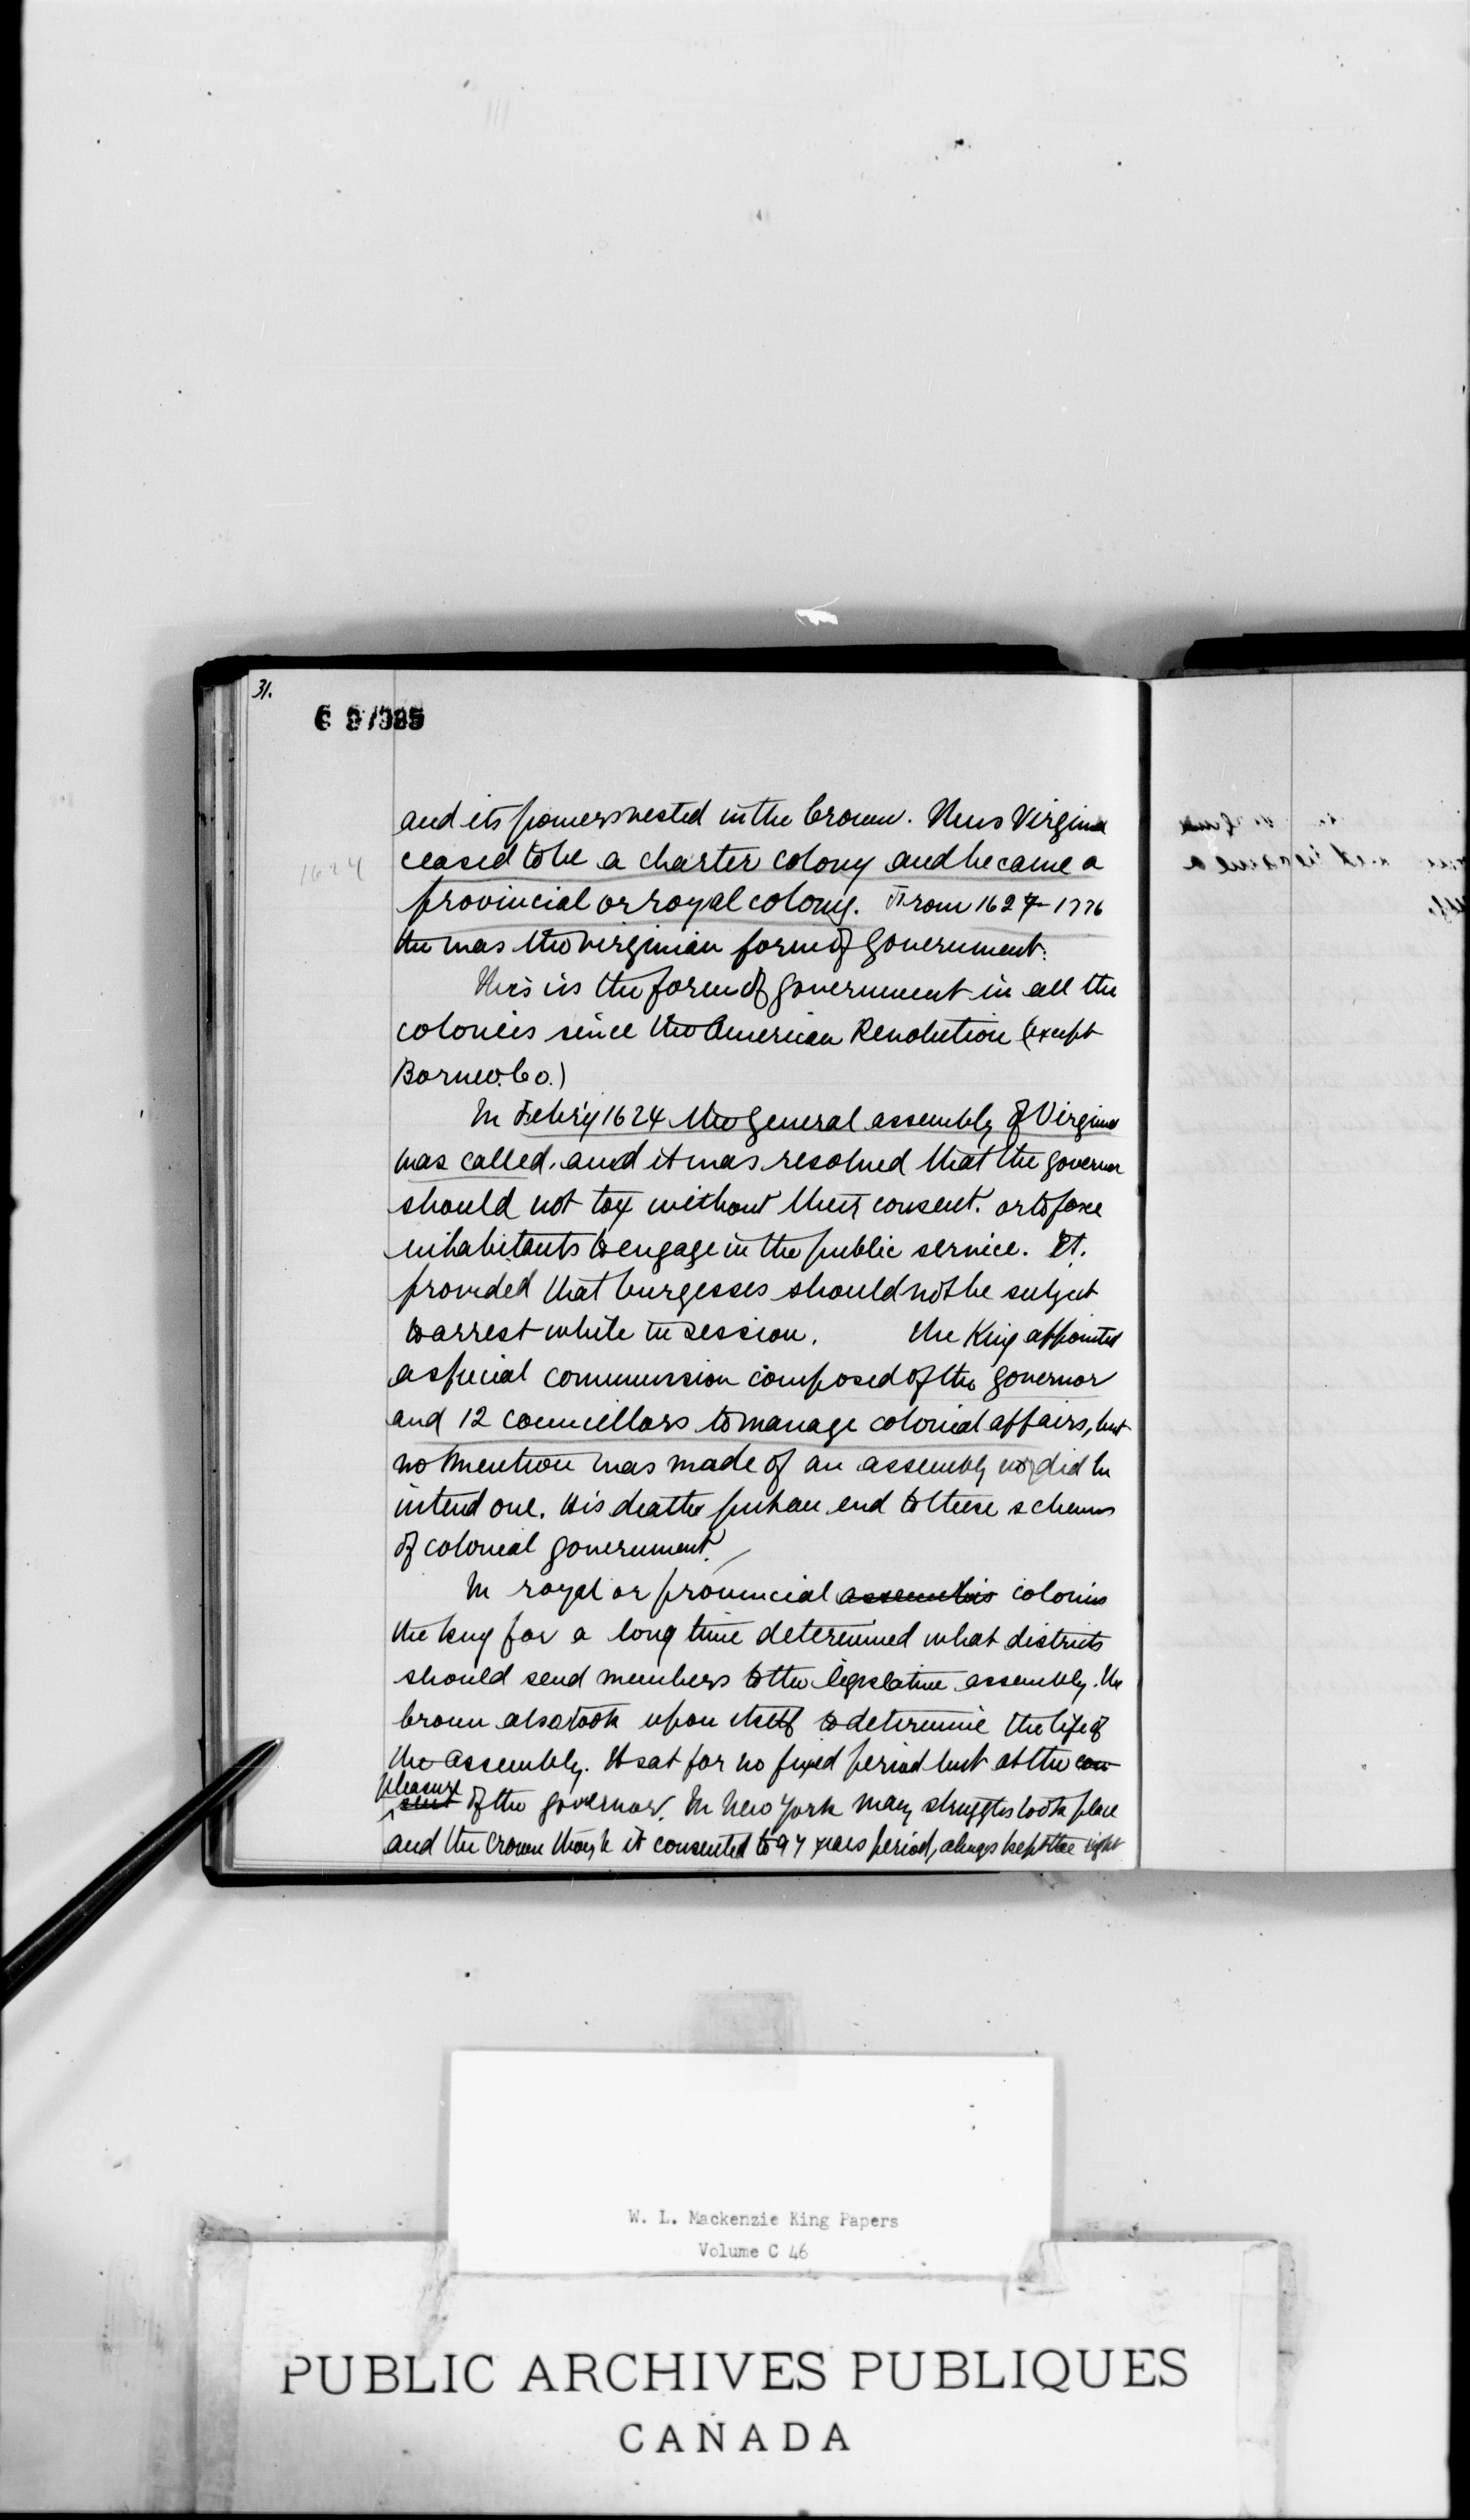 31.
and its powers vested in the Crown. Thus Virginia
1624
ceased to be a charter colony and became a
provincial or royal colony. From 1627-1776
this was the virginian form of Government.
This is the form of government in all the
colonies since the American Revolution (except
Borneo. Co.)
In Feb'y 1624 the General assembly of Virginia
was called. and it was resolved that the governor
should not tax without their consent. or to force
inhabitants to engage in the public service. It.
provided that burgesses should not be subject
to arrest while in session. The King appointed
a special commission composed of the governor
and 12 councillors to manage colonial affairs, but
no mention was made of an assembly nor did he
intend one. His death put an end to these schemes
of colonial government.
In royal or provincial assemblies colonies
the king for a long time determined what districts
should send members to the legislative assembly. The
Crown also took upon itself to determine the life of
the assembly. It sat for no fixed period but at the con
pleasure
sent of the governor. In New York many struggles took place
and the Crown though it consented to a 7 years period, always kept the right
W. L. Mackenzie King Papers
Volume C 46
PUBLIC ARCHIVES PUBLIQUES
CANADA